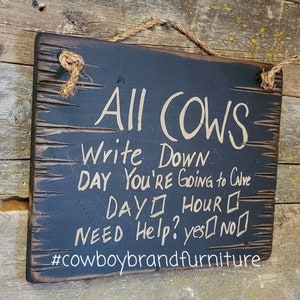 All COWS
Write Down
DAY You're Going to Calve
DAY☐ HOUR☐
NEED Help? yes☐ NO☐
#cowboybrandfurniture